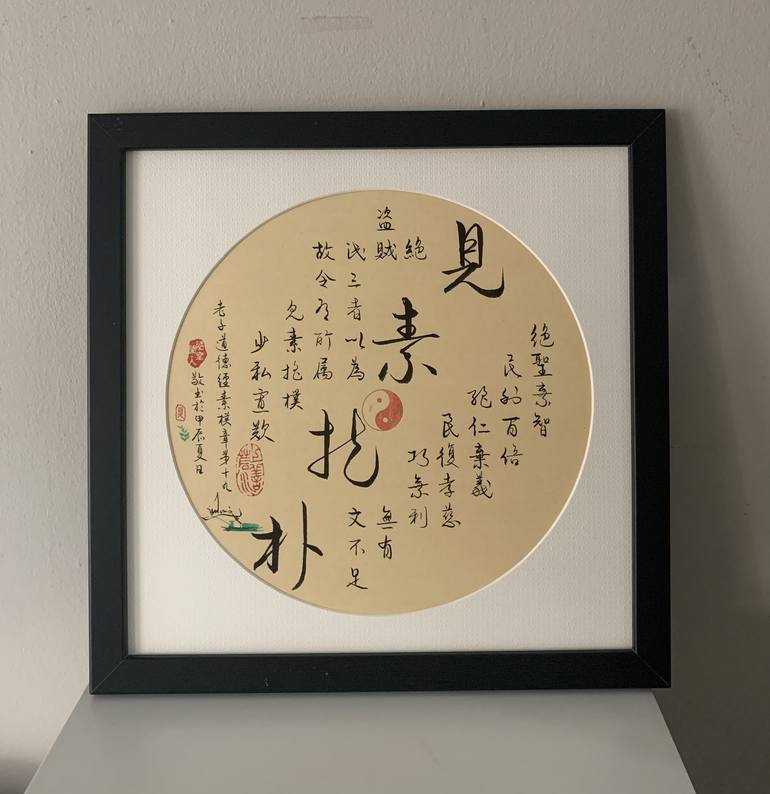 見素抱朴
绝聖棄智
民利百倍
絕仁棄義
民復孝慈
絕巧棄利
盗賊無有
此三者以為文不足
故令有所属
見素抱樸
少私寡欲
老子道德經素樸章第十九
敬书於甲辰夏日